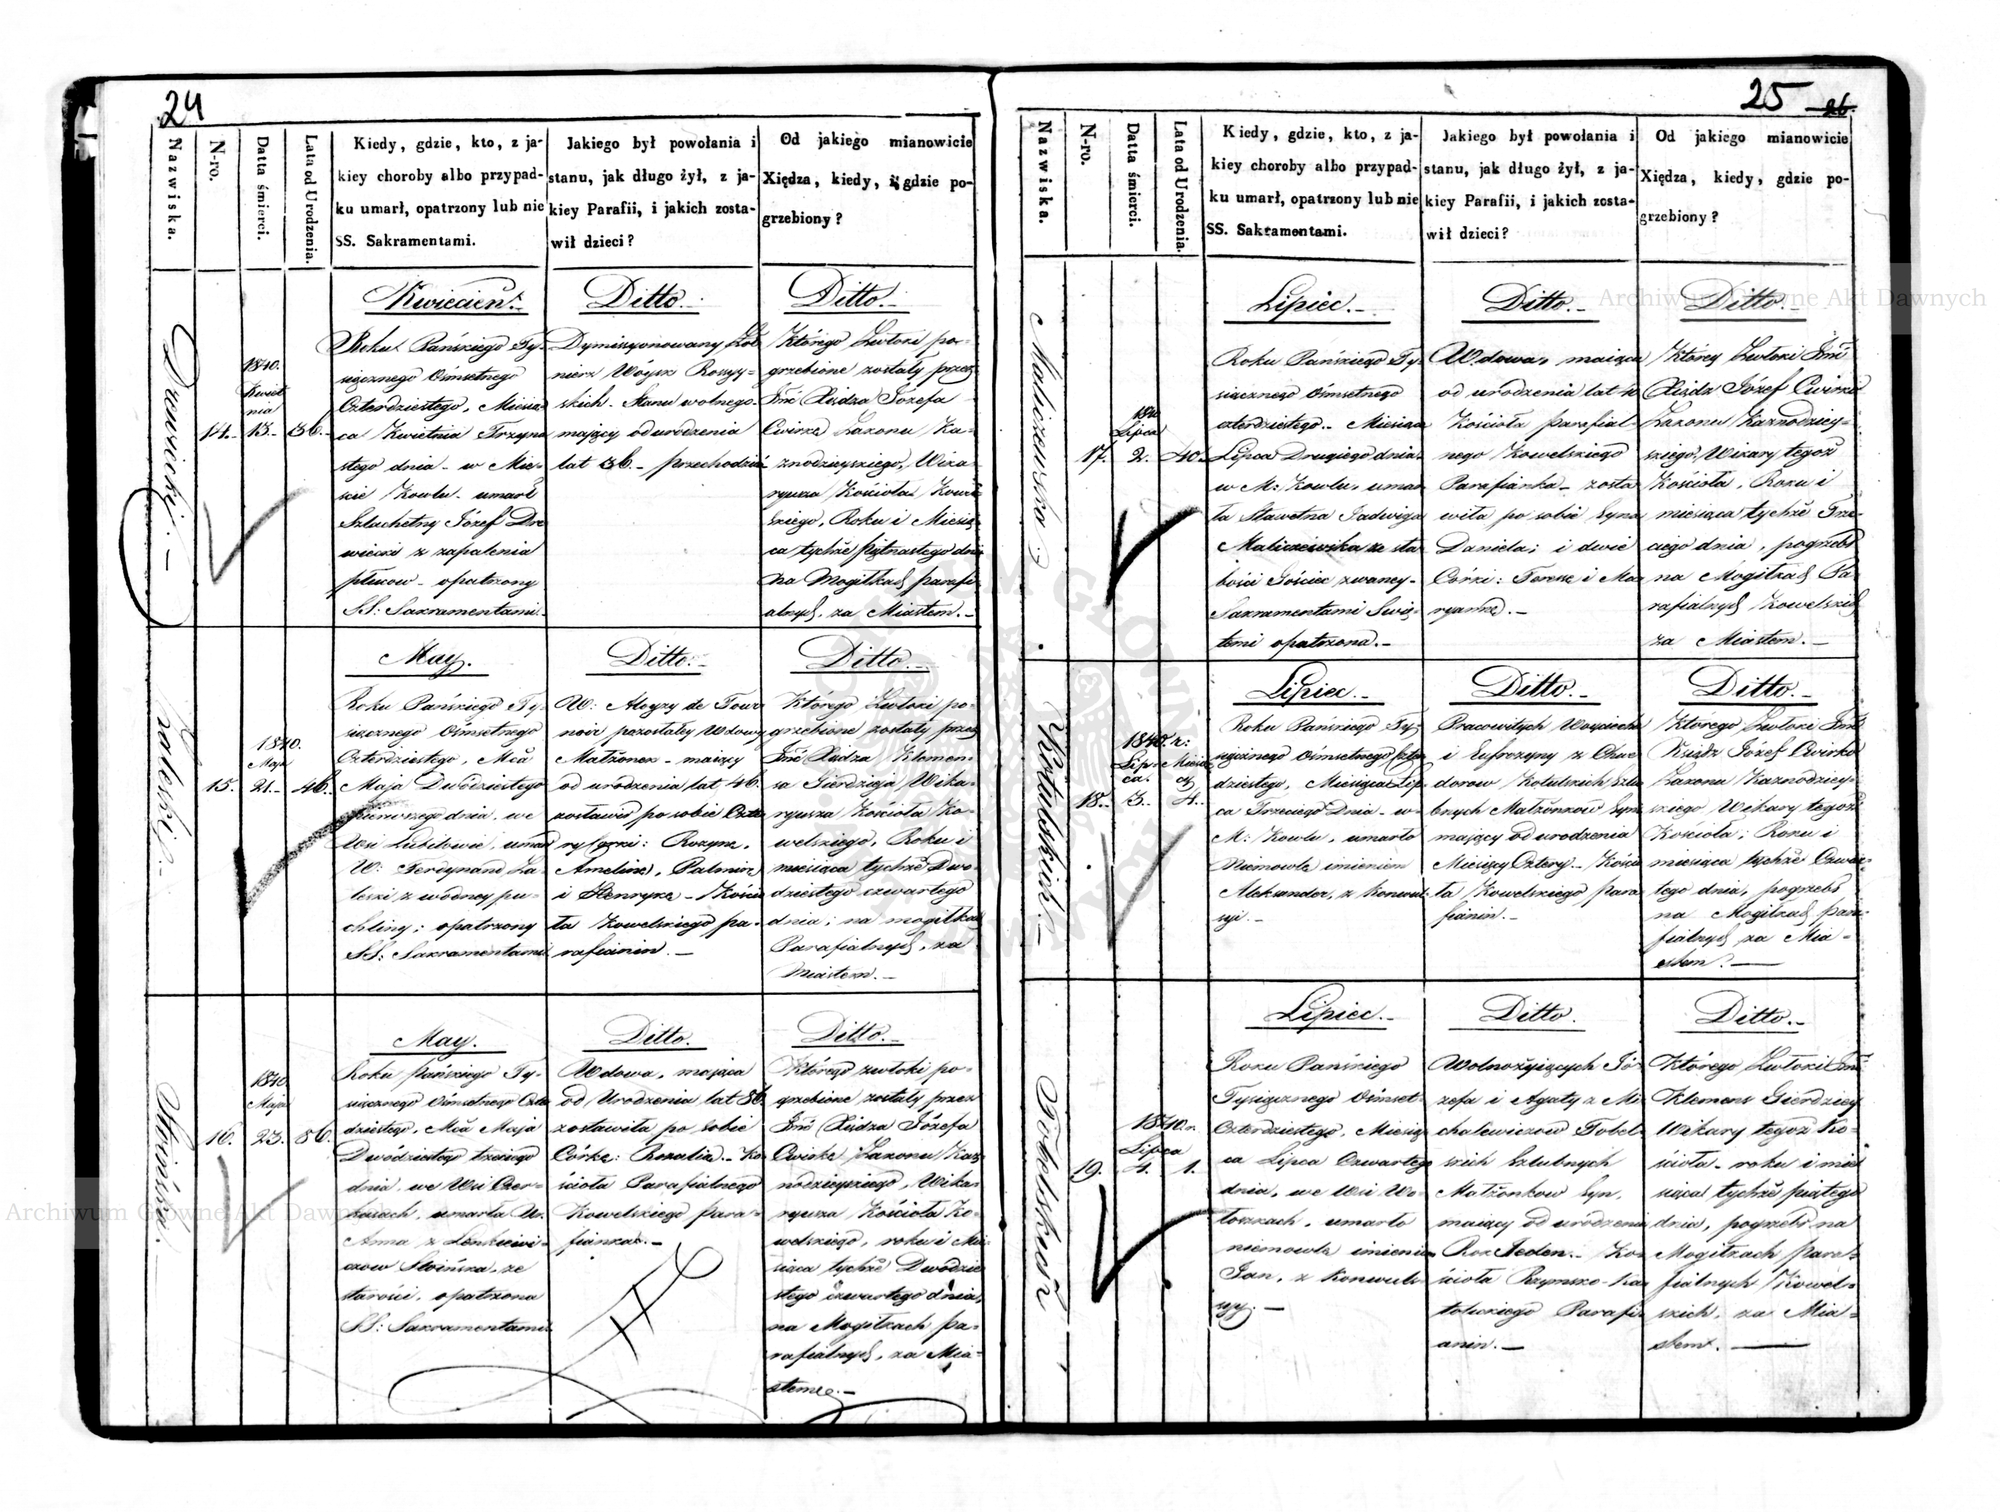 24
Nazwiska.
N-ro.
Datta śmierci.
Lata od Urodzenia.
Kiedy, gdzie, kto, z ja-
kiey choroby albo przypad-
ku umarł, opatrzony lub nie
SS. Sakramentami.
Jakiego był powołania i
stanu, jak długo żył, z ja-
kiey Parafii, i jakich zosta-
wił dzieci?
Od jakiego mianowicie
Xiędza, kiedy, i gdzie po-
grzebiony?
Drewiecki.—
14.
1840.
Kwiet
nia
13.
36.
Kwiecień.
Roku Pańskiego Ty-
siącznego Ośmsetnego
Czterdziestego, Miesią-
ca Kwietnia Trzyna
stego dnia – w Mie-
ście Kowlu – umarł
Szlachetny Józef Dre
wiecki z zapalenia
płucow – opatrzony
SS: Sakramentami.
Ditto.
Dymissyonowany Żoł
nierz Woysk Rossyy-
skich – Stanu wolnego.
maiący od urodzenia
lat 36. –
Ditto.
Którego Zwłoki po-
grzebione zostały przez
Jmć Xiędza Józefa
Cwirkę Zakonu Ka-
znodzieyskiego, Wika-
ryusza Kościoła Kowel
skiego, Roku i Miesią-
ca tychże piętnastego dnia
na Mogiłkach parafi-
alnych, za Miastem.–
Zaleski.–
15.
1840.
Maja
21.
46.
May.
Roku Pańskiego Ty-
siącznego Ośmsetnego
Czterdziestego, Mca
Maja Dwódziestego
pierwszego dnia, we
Wsi Lubitowie, umarł
W: Ferdynand Za-
leski z wodney pu-
chliny; opatrzony
SS: Sakramentami
Ditto.
W: Aloyzy de Tour
noir pozostałey Wdowy
Małżonek – maiący
od urodzenia lat 46.
zostawił po sobie Czte
ry Corki: Rozynę,
Amelinę, Palminę
i Henrykę – Kościo
ła Kowelskiego pa-
rafianin.–
Ditto.
Którego Zwłoki po-
grzebione zostały przez
Jmć Xiędza Klemen-
sa Gierdzieja Wika-
ryusza Kościoła Ko-
welskiego, Roku i
miesiąca tychże Dwó-
dziestego czwartego
dnia; na mogiłkach
Parafialnych, za
Miastem.–
Słoińska.
16.
1840.
Maja
23.
86.
May.
Roku pańskiego Ty-
siącznego Ośmsetnego Czter
dziestego, Mca Maja
Dwódziestego trzeciego
dnia, we Wsi Czer-
kasach, umarła W.
Anna z Lenkiewi-
czow Słoińska, ze
starości, opatrzona
SS: Sakramentami
Ditto.
Wdowa, maiąca
od Urodzenia lat 86.
zostawiła po sobie
Córkę: Rozalię. – Ko
ścioła Parafialnego
Kowelskiego para-
fianka.–
Ditto.
Którego zwłoki po-
grzebione zostały przez
Jmć Xiędza Józefa
Cwirkę Zakonu Kaz
nodzieyskiego, Wika-
ryusza Kościoła Ko-
welskiego, roku i Mie
siąca tychże Dwodzie
stego czwartego dnia,
na Mogiłkach pa-
rafialnych, za Mia-
stem.–
25 26.
Nazwiska.
N-ro.
Datta śmierci.
Lata od Urodzenia.
Kiedy, gdzie, kto, z ja-
kiey choroby albo przypad-
ku umarł, opatrzony lub nie
SS. Sakramentami.
Jakiego był powołania i
stanu, jak długo żył, z ja-
kiey Parafii, i jakich zosta-
wił dzieci?
Od jakiego mianowicie
Xiędza, kiedy, gdzie po-
grzebiony?
Maliczewska
17.
1840
Lipca
2.
40.
Lipiec.–
Roku Pańskiego Ty-
siącznego Ośmsetnego
czterdziestego – Miesiąca
Lipca Drugiego dnia
w M: Kowlu, umar
ła Sławetna Jadwiga
Maliczewska ze sła
bości Gościec zwaney–
Sakramentami Świę-
temi opatrzona.–
Ditto.–
Wdowa, maiąca
od urodzenia lat 40
Kościoła parafial-
nego Kowelskiego
Parafianka – zosta
wiła po sobie Syna
Daniela; i dwie
Córki: Teresę i Ma
ryannę.–
Ditto.–
Którey Zwłoki Jmć
Xiądz Józef Cwirko
Zakonu Kaznodziey-
skiego, Wikary tegoż
Kościoła, Roku i
miesiąca tychże Trze-
ciego dnia, pogrzebł
na Mogiłkach Pa-
rafialnych Kowelskich
za Miastem.–
18.
1840 r:
Lip-
ca.
3.
Miesię
cy
4.
Lipiec.–
Roku Pańskiego Ty-
siącznego Ośmsetnego Czter
dziestego, Miesiąca Lip
ca Trzeciego Dnia – w
M: Kowlu, umarło
Niemowlę imieniem
Aleksander, z konwul
syi.–
Ditto.–
Pracowitych Woyciecha
i Eufrozyny z Chwe
dorow Szlu
bnych Małżonkow Syn,
maiący od urodzenia
Miesięcy Cztery – Kościo
ła Kowelskiego para
fianin.–
Ditto.–
Którego Zwłoki Jmć
Xiądz Józef Cwirko
Zakonu Kaznodziey-
skiego Wikary tegoż
Kościoła; Roku i
miesiąca tychże Czwar-
tego dnia, pogrzebł
na Mogiłkach para-
fialnych za Mia-
stem.–
19.
1840 r.
Lipca
4.
1.
Lipiec.–
Roku Pańskiego
Tysiącznego Ośmset-
Czterdziestego, Miesią
ca Lipca Czwartego
dnia, we Wsi Wo-
łoszkach, umarło
niemowlę imieniem
Jan, z konwul-
syy.–
Ditto.
Wolnożyiących Jó-
zefa i Agaty z Mi-
chalewiczow Tobel-
skich Szlubnych
Małżonkow Syn,
maiący od urodzenia
Rok Jeden. – Ko-
ścioła Rzymsko-ka
tolickiego Parafi-
anin.–
Ditto.–
Którego Zwłoki Jmć
Klemens Gierdziey
Wikary tegoż Ko-
ścioła – roku i mie
siąca tychże piątego
dnia, pogrzebł na
Mogiłkach para-
fialnych Kowel-
skich, za Mia-
stem.–
Archiwum Główne Akt Dawnych
Archiwum Główne Akt Dawnych